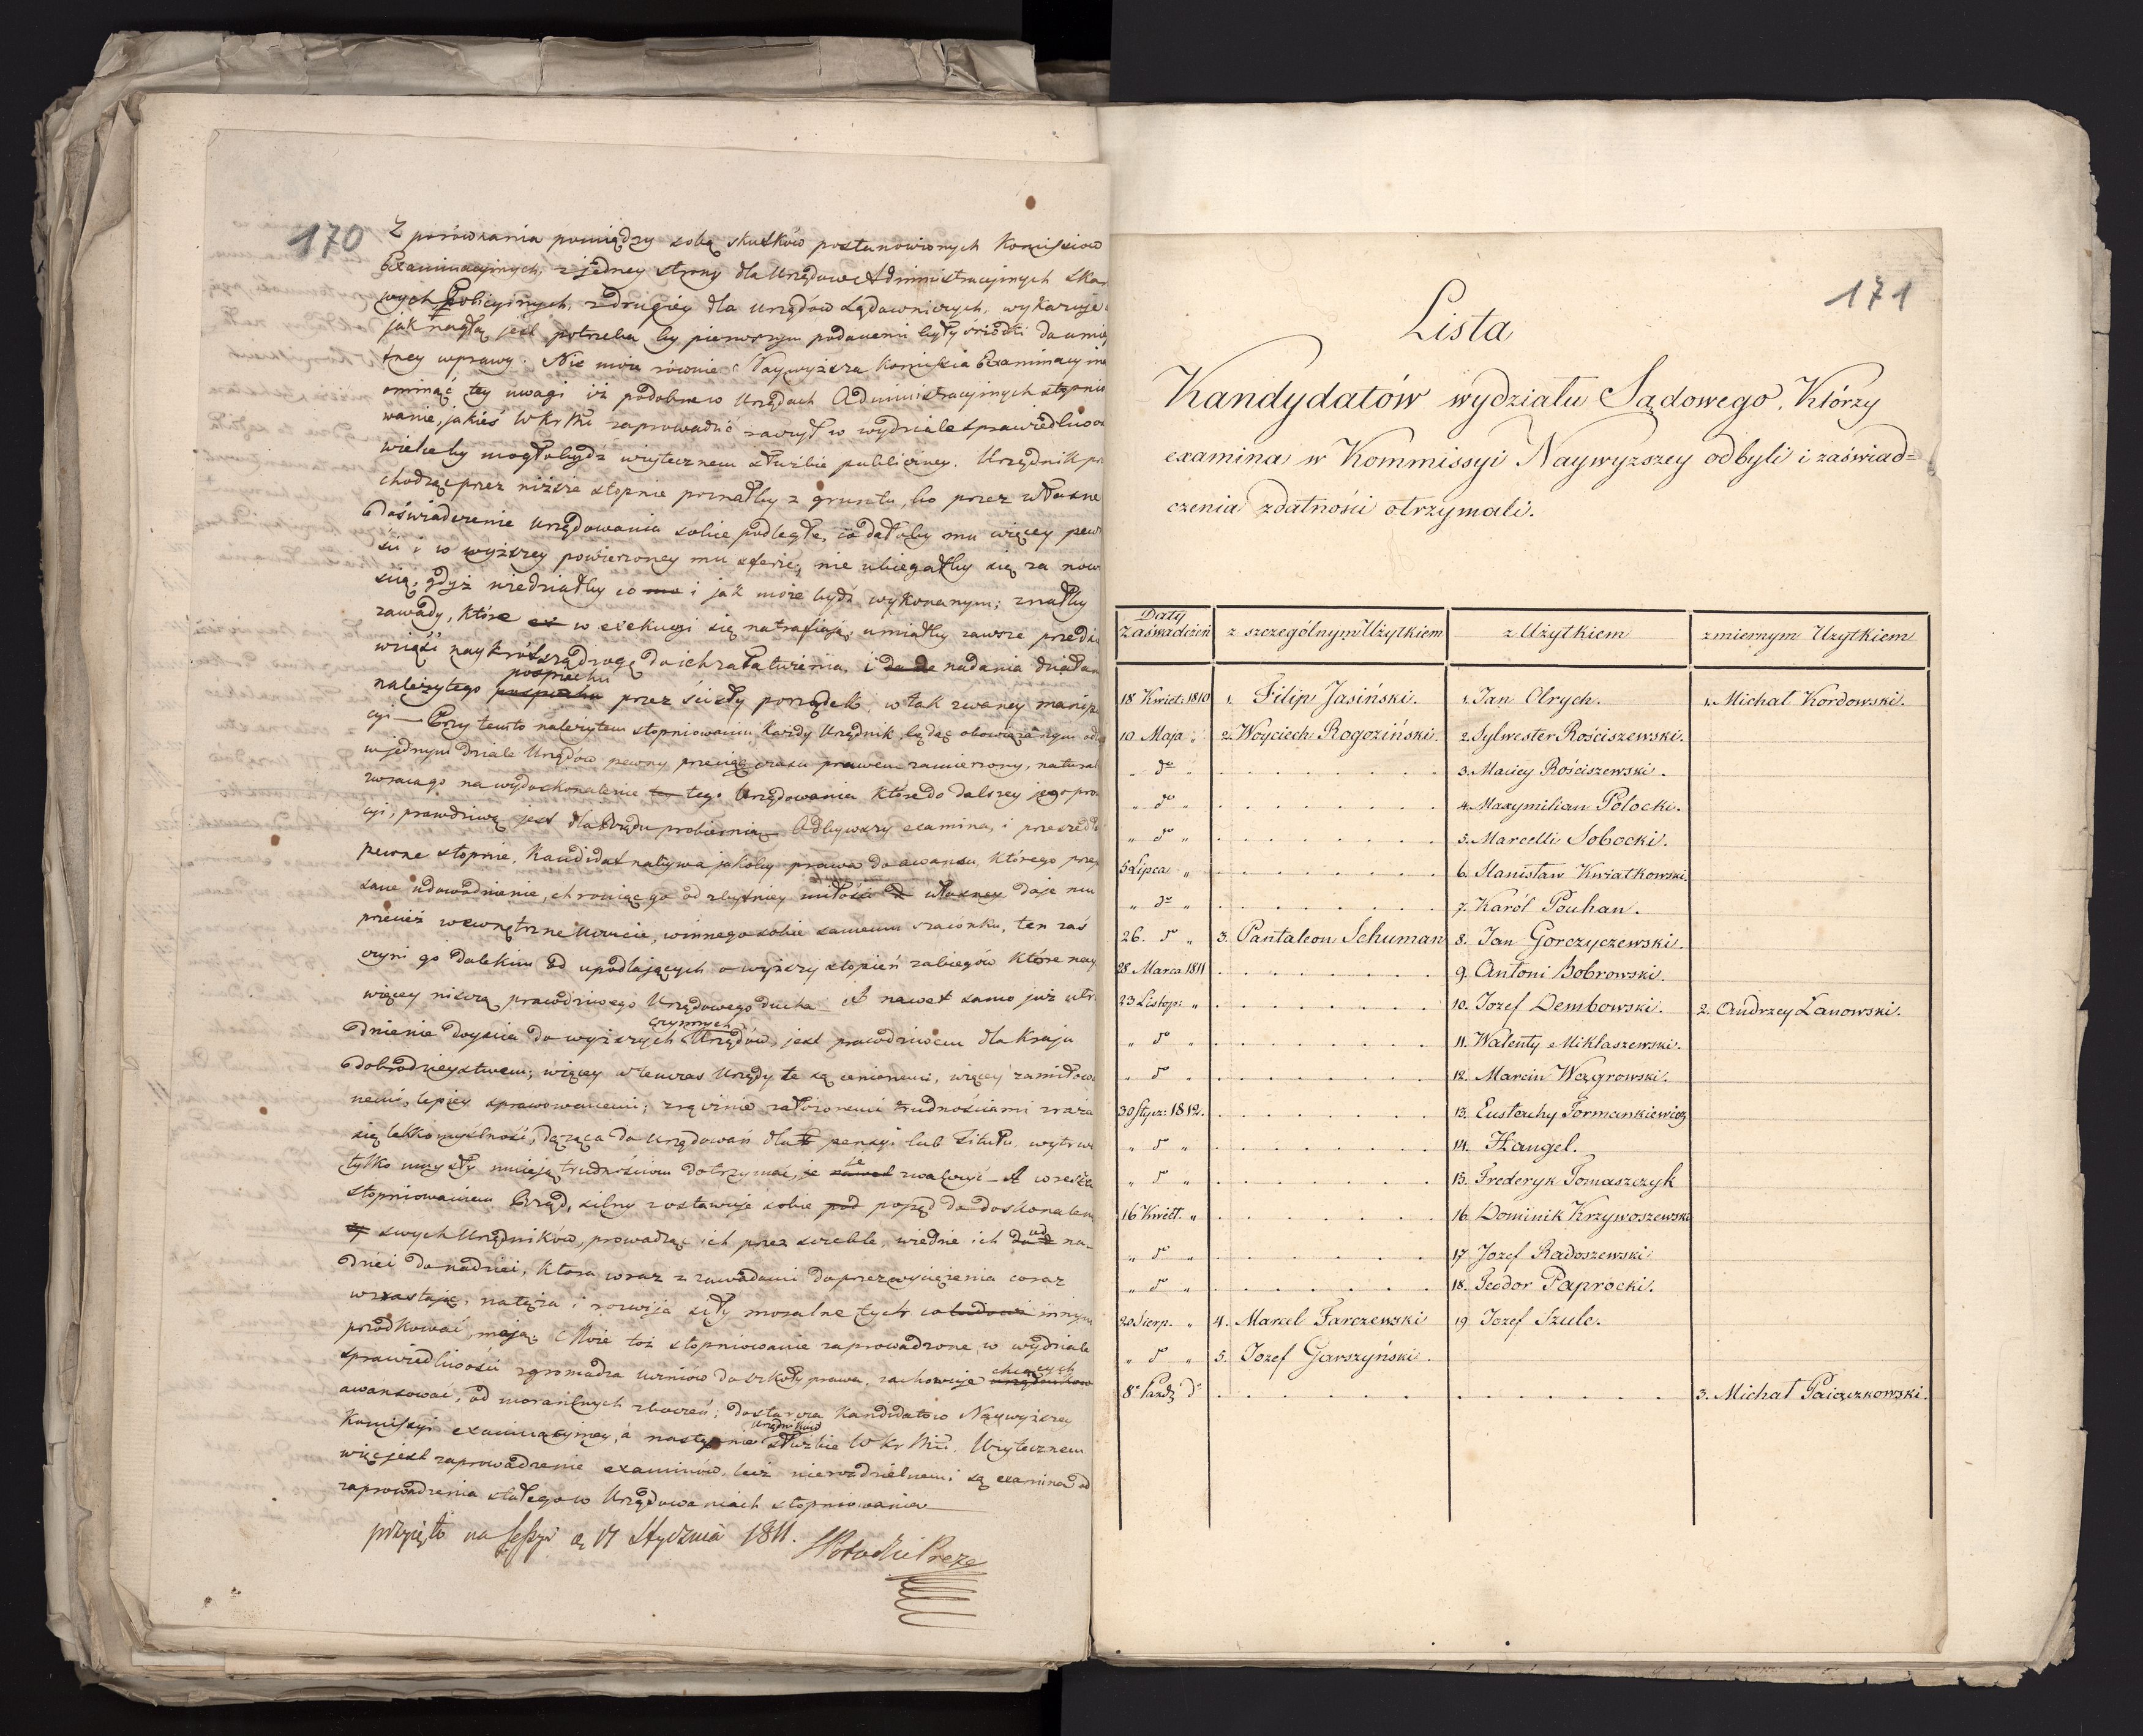 170
Z porównania pomiędzy sobą skutków postanowionych Komissiow
Examinacyinych, z jedney strony dla Urzędów Administracyinych Skar
wych Policyinych, z drugiey dla urzędów sądowniczych, wykazuje
jak nagłą jest potrzeba by pierwszym podanemi były śrzodki do umie
tney wprawy. Nie może równie Naywyższa Komissia Examinacyina
ominąć tey uwagi iż podobne w Urzędach Administracyinych stopnio
wanie, jakieś WKsMć zaprowadzić raczył w wydziale sprawiedliwo
wieleby mogło bydź użytecznem służbie publiczney. Urzędnik prze
chodząc przez niższe stopnie poznałby z gruntu, bo przez własne
doświadczenie Urzędowania sobie podległe, co dałoby mu więcey pew
ści i w wyższey powierzoney mu sferze, nie ubiegałby się za now
ścią, gdyż wiedziałby co i jak może bydź wykonanym; znałby
zawady, które w exekucyi się natrafiają, umiałby zawsze przedsię
wziąść naykrótszą drogę do ich załatwienia, i nadania działan
pospiechu
należytego przez ścisły porządek, w tak zwaney manipu
cyi — Przy tem to należytem stopniowaniu każdy Urzędnik będąc obowiązanym od
w jednym dziale Urzędów pewny przeciąg czasu prawem zamierzony, natural
zwraca go na wydoskonalenie tego Urzędowania które do dalszey jego pro
cyi, prawdziwą jest dla Rządu probiernią. Odbywszy examina, i przeszedłs
pewne stopnie, Kandidat nabywa jakoby prawa do awansu, którego przep
sane udowodnienie, chroniąc go od zbytniey miłości własney daje mu
przecież wewnętrzne uczucie, winnego sobie samemu szacunku, ten zaś
czyni go dalekim od upodlających o wyższy stopień zabiegów które nay
więcey niszczą prawdziwego Urzędowego ducha — A nawet samo już utru
czynnych
dnienie doyścia do wyższych Urzędów, jest prawdziwem dla Kraju
dobrodzieystwem; więcey wtenczas Urzędy te są cenionemi, więcey zamiłowa
nemi, lepiey sprawowanemi; zręcznie założonemi trudnościami zraża
się lekkomyślność, dążąca do urzędowań dla pensyi lub tytułu, wytrwa
tylko umysły umieją trudnościom dotrzymać, je zwalczyć — A wreszcie
stopniowaniem Rząd, silny zostawuje sobie popęd do doskonalenia
swych Urzędników, prowadząc ich przez szczeble, wiedzie ich od na-
dziei do nadziei, która wraz z zawadami do przezwyciężenia coraz
wzrastając, natęża i rozwija siły moralne tych co innym
przodkować mają. Może toż stopniowanie zaprowadzone w wydziale
sprawiedliwości zgromadza uczniów do szkoły prawa, zachowuje chcących
awansować, od moralnych zboczeń; dostarcza Kandidatów Naywyższey
Komissyi examinacyiney, a następnie służbie WKsMci. Użytecznem
więc jest zaprowadzenie examinów, lecz nierozdzielnemi są examina od
zaprowadzenia stałego w Urzędowaniach stopniowania
przyięto na Sessyi d. 17 Stycznia 1811. Potocki Preze
171
Lista
Kandydatów wydziału Sądowego, Którzy
examina w Kommissyi Naywyzszey odbyli i zaświad=
czenia zdatności otrzymali.
Daty Zaświadczeń z szczególnym Użytkiem z Użytkiem z miernym Użytkiem
18 Kwiet. 1810 1. Filip Jasiński. 1. Jan Olrych. 1. Michał Kordowski.
10 Maja " 2. Woyciech Rogoziński. 2. Sylwester Rościszewski.
" do " 3. Maciey Rościszewski.
" do " 4. Maxymilian Polocki.
" do " 5. Marcelli Sobocki.
5 Lipca " 6. Stanisław Kwiatkowski.
" do " 7. Karól Pouhan.
26. do " 3. Pantaleon Schuman 8. Jan Gorczyczewski.
28 Marca 1811 9. Antoni Bobrowski.
23 Listop: " 10. Jozef Dembowski. 2. Andrzey Lanowski.
" do " 11. Walenty Mikłaszewski.
" do " 12. Marcin Wągrowski.
30 Stycz: 1812. 13. Eustachy Formankiewicz
" do " 14. Hangel.
" do " 15. Frederyk Tomaszczyk
16 Kwiet. " 16. Dominik Krzywoszewski
" do " 17. Jozef Radoszewski
" do " 18. Teodor Paprocki.
20 Sierp. " 4. Marcel Tarczewski 19. Jozef Szulc.
" do " 5. Jozef Garszyński.
8 Paźdz do 3. Michał Paiączkowski.